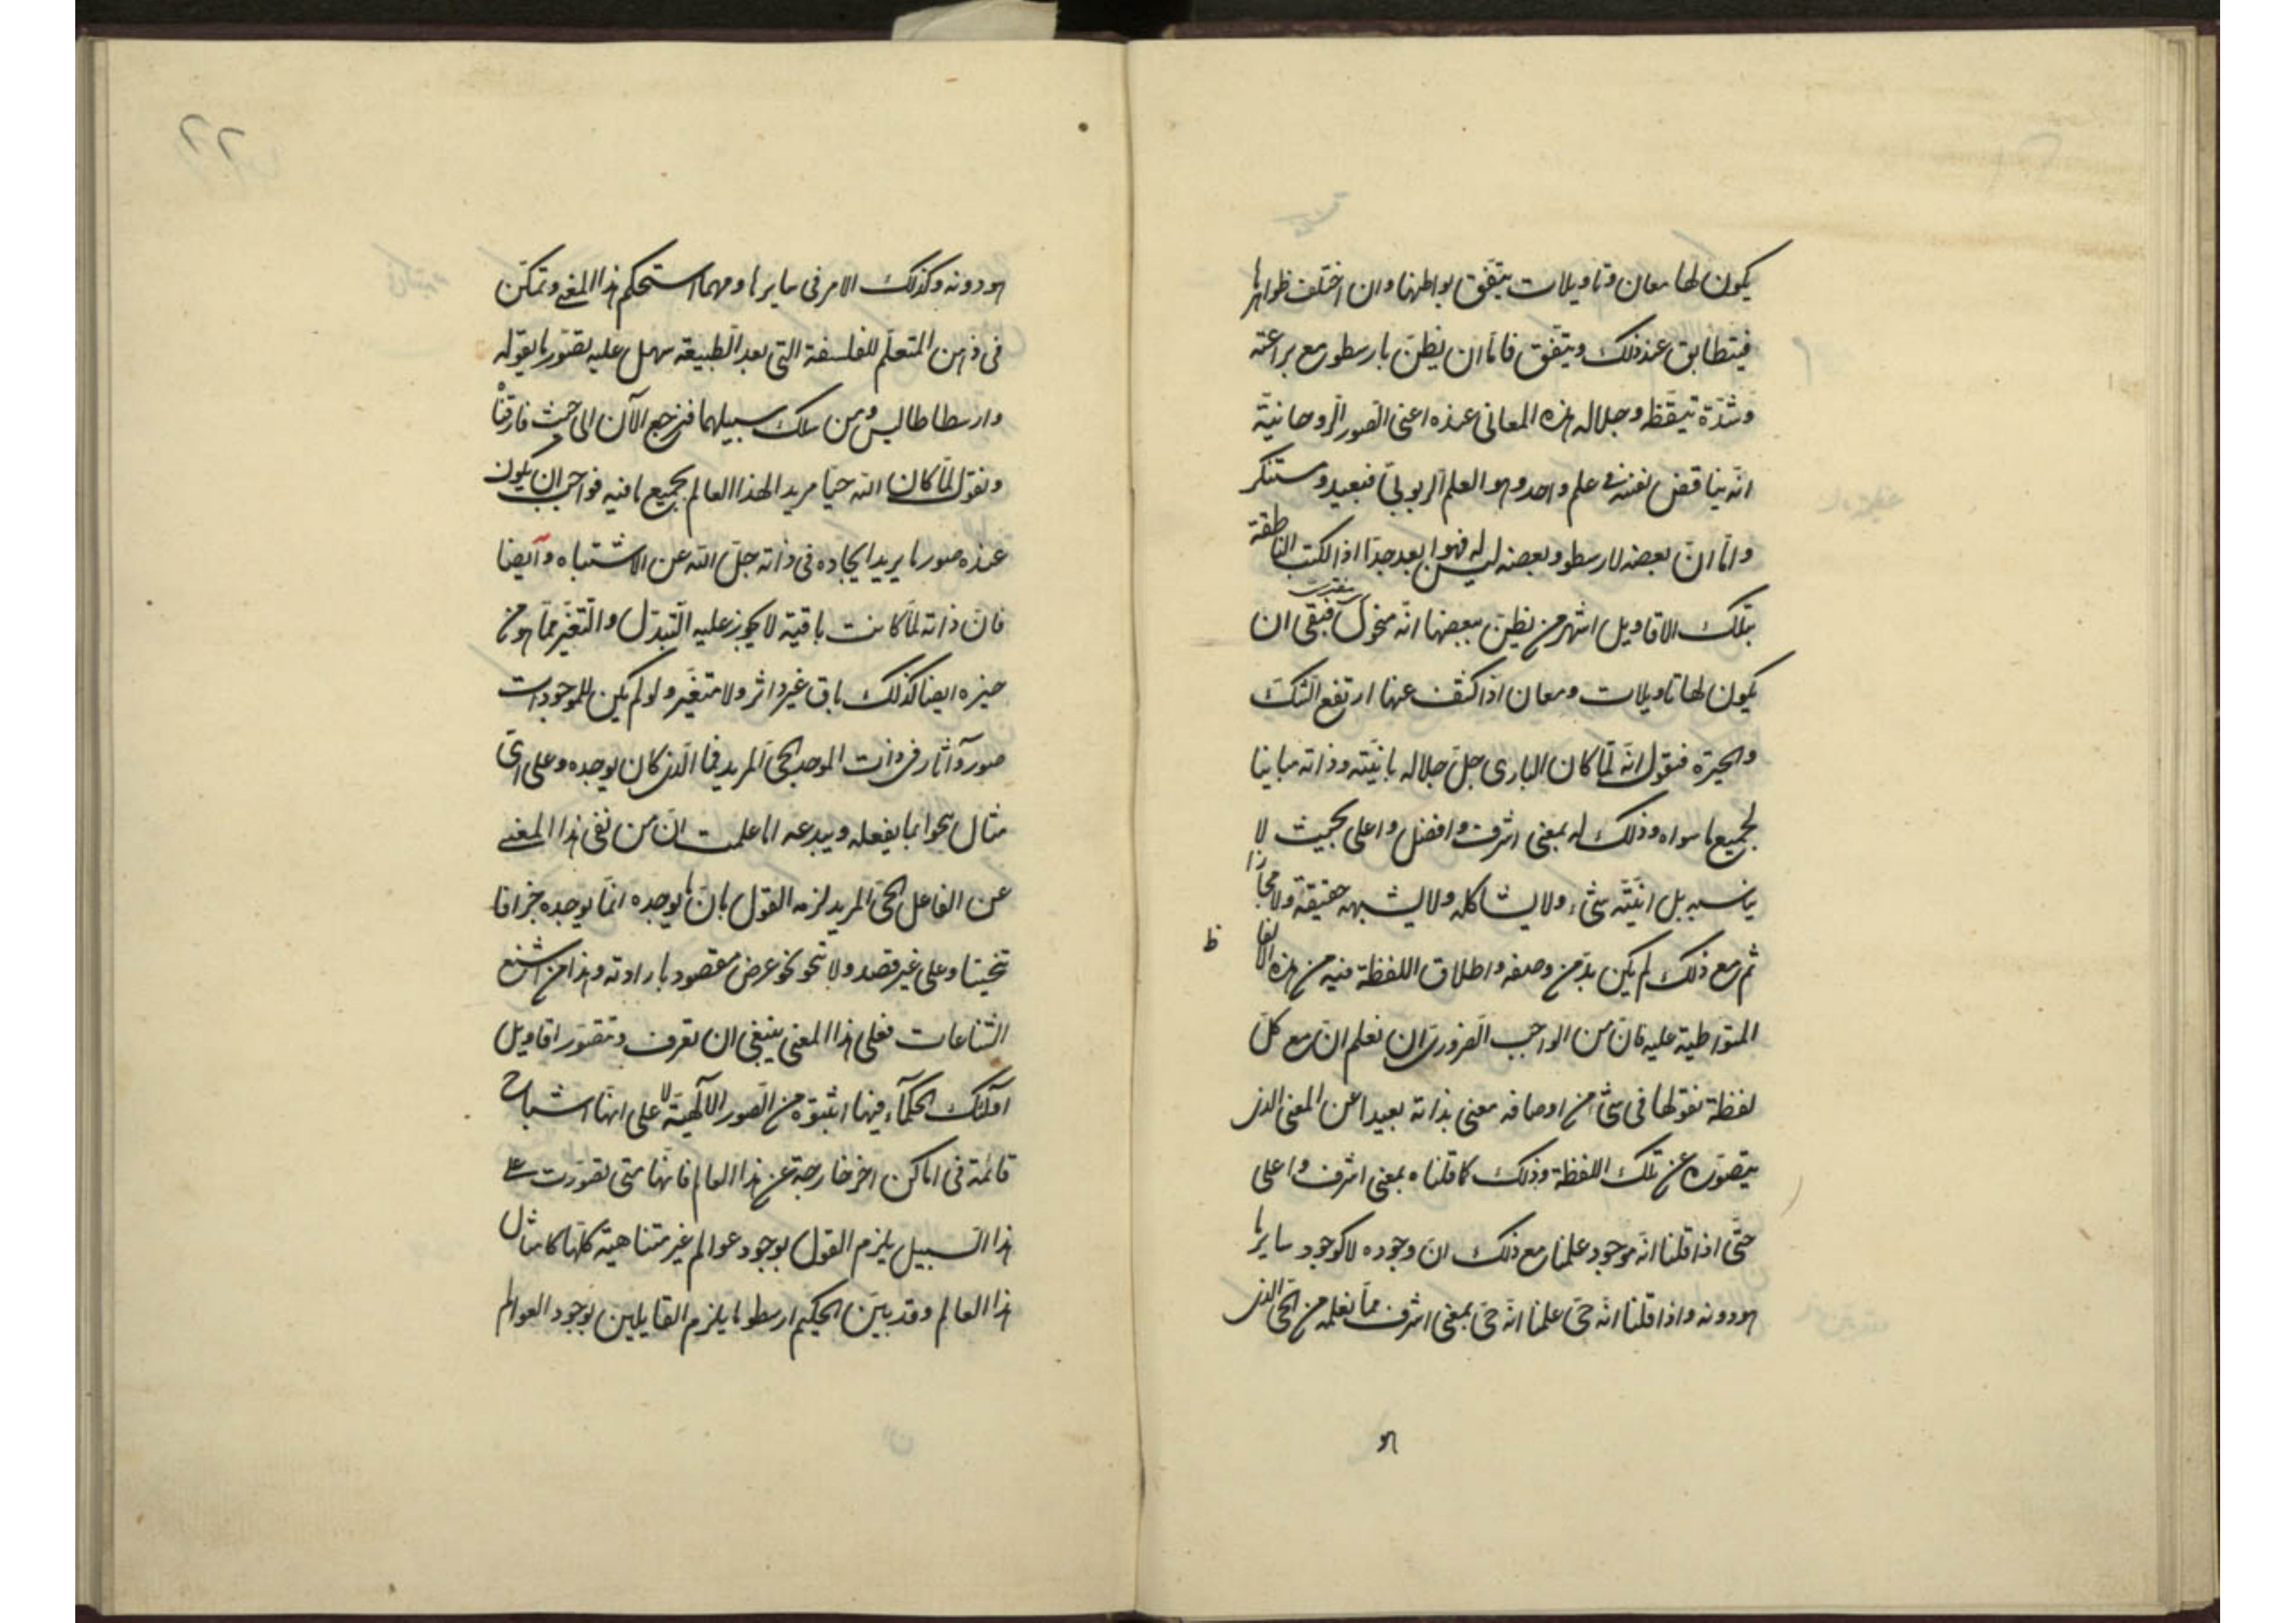 يكون لها معان وتاويلات يتفق بواطنها وان اختلف ظواهرها
فيتطابق عند ذلك ويتفق فامّا ان يظنّ بارسطو مع براعته
وشدّة تيقّظه وجلاله هذه المعانى عنده اعنى الصّور الرّوحانيّة
انّه يناقض نفسه فى علم واحد وهو العلم الرّبوبىّ فبعيد ومستنكر
وامّا انّ بعضه لارسطو وبعضه ليس له فهو ابعد جدّا اذ الكتب الناطقة
بتلك الاقاويل اشهر من ان يظنّ ببعضها انّه منحول فبقى ان
يكون لها تاويلات ومعان اذا كشف عنها ارتفع الشّكّ
والحيرة فنقول انّه لمّا كان البارى جلّ جلاله بانيّته وذاته مباينا
لجميع ما سواه وذلك له بمعنى اشرف وافضل واعلى بحيث لا
يناسبه بل انيّته شىء ولا يشاكله ولا يشبهه حقيقة ولا مجازا
ثم مع ذلك لم يكن بدّ من وصفه واطلاق اللفظة فيه من هذه الالفا
ظ
المتواطية عليه فانّ من الواجب الضّرورى ان نعلم انّ مع كلّ
لفظة نقولها فى شىء من اوصافه معنى بذاته بعيدا عن المعنى الذى
يتصوّره عن تلك اللفظة وذلك كما قلناه بمعنى اشرف واعلى
حتّى اذا قلنا انّه موجود علمنا مع ذلك انّ وجوده لا كوجود سايرها
هو دونه واذا قلنا انّه حىّ علمنا انّه حىّ بمعنى اشرف ممّا نعلمه من الحىّ الذى
هو
٢٢
هو دونه وكذلك الامر فى سايرها ومهما استحكم هذا المعنى وتمكّن
فى ذهن المتعلّم للفلسفة التى بعد الطّبيعة سهل عليه تصوّر ما يقوله
وارسطاطاليس ومن سلك سبيلهما فنرجع الآن الى حيث فارقنا
ونقول لمّا كان اللّه حيّا مريدا لهذا العالم بجميع ما فيه فواجب ان يكون
عنده صور ما يريد ايجاده فى ذاته جلّ اللّه عن الاشتباه وايضا
فانّ ذاته لمّا كانت باقية لا يجوز عليه التّبدّل والتّغيّر ممّا هو من
حيزه ايضا كذلك باق غير داثر ولا متغيّر ولو لم يكن للموجودات
صور وآثار فى ذات الموجد الحىّ المريد فما الّذى كان يوجده وعلى اىّ
مثال ينحو بما يفعله ويبدعه اما علمت انّ من نفى هذا المعنى
عن الفاعل الحىّ المريد لزمه القول بانّ ما يوجده انّما يوجده جزافا
تنحيتا وعلى غير قصد ولا ينحو نحو غرض مقصود بارادته وهذا من اشنع
الشّناعات فعلى هذا المعنى ينبغى ان تعرف وتتصوّر اقاويل
اولئك الحكمآء فيما اثبتوه من الصّور الالٓهيّة لا على انّها اشباح
قائمة فى اماكن اخر خارجة عن هذا العالم فانّها متى تصوّرت على
هذا السّبيل يلزم القول بوجود عوالم غير متناهية كلّها كامثال
هذا العالم وقد بيّن الحكيم ارسطو ما يلزم القايلين بوجود العوالم